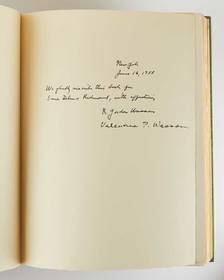 New York
June 16, 1958
We gladly inscribe this book for
with affection,
R. Gordon Wasson
Valentina P. Wasson